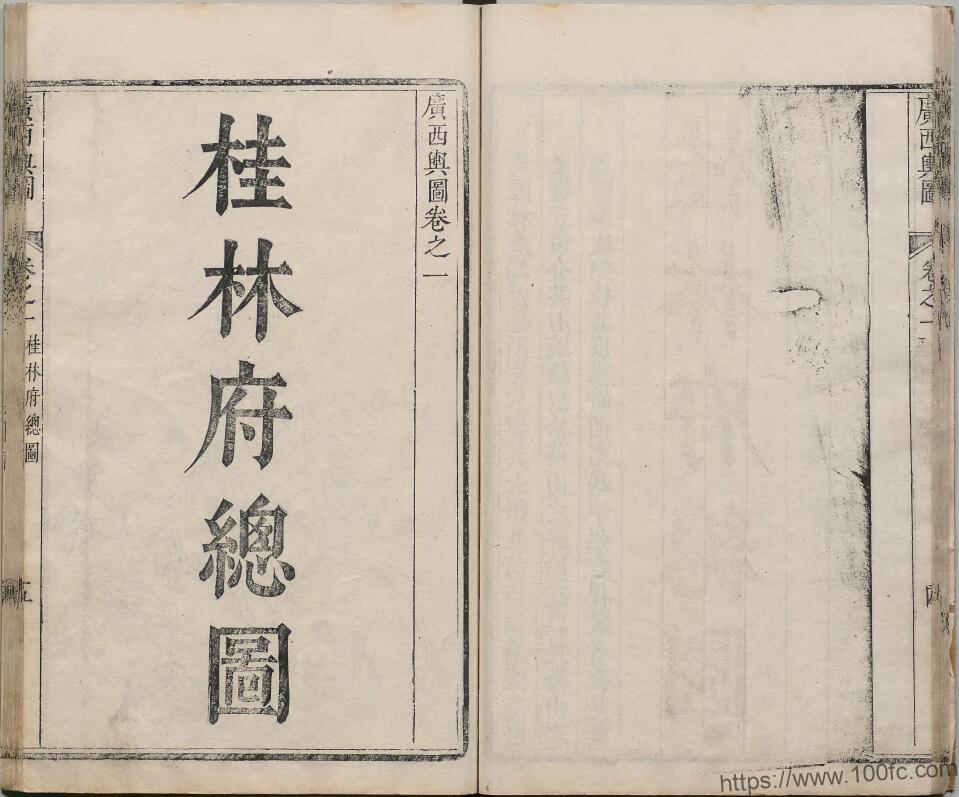 廣西輿圖
卷之一
四
廣西輿圖卷之一
桂林府總圖
廣西輿圖
卷之一
桂林府總圖
五
https://www.100fc.com